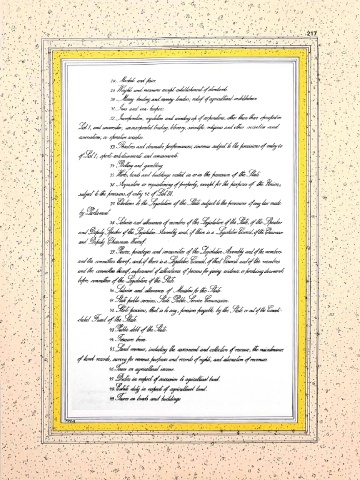 217
28. Markets and fairs.
29. Weights and measures except establishment of standards.
30. Money-lending and money-lenders; relief of agricultural indebtedness.
31. Inns and inn-keepers.
32. Incorporation, regulation and winding up of corporations, other than those specified in
List I, and universities; unincorporated trading, literary, scientific, religious and other societies and
associations; co-operative societies.
33. Theatres and dramatic performances; cinemas subject to the provisions of entry 60
of List I; sports, entertainments and amusements.
34. Betting and gambling.
35. Works, lands and buildings vested in or in the possession of the State.
36. Acquisition or requisitioning of property, except for the purposes of the Union,
subject to the provisions of entry 42 of List III.
37. Elections to the Legislature of the State subject to the provisions of any law made
by Parliament.
38. Salaries and allowances of members of the Legislature of the State, of the Speaker
and Deputy Speaker of the Legislative Assembly and, if there is a Legislative Council, of the Chairman
and Deputy Chairman thereof.
39. Powers, privileges and immunities of the Legislative Assembly and of the members
and the committees thereof, and, if there is a Legislative Council, of that Council and of the members
and the committees thereof; enforcement of attendance of persons for giving evidence or producing documents
before committees of the Legislature of the State.
40. Salaries and allowances of Ministers for the State.
41. State public services; State Public Service Commission.
42. State pensions, that is to say, pensions payable by the State or out of the Consoli-
dated Fund of the State.
43. Public debt of the State.
44. Treasure trove.
45. Land revenue, including the assessment and collection of revenue, the maintenance
of land records, survey for revenue purposes and records of rights, and alienation of revenues.
46. Taxes on agricultural income.
47. Duties in respect of succession to agricultural land.
48. Estate duty in respect of agricultural land.
49. Taxes on lands and buildings.